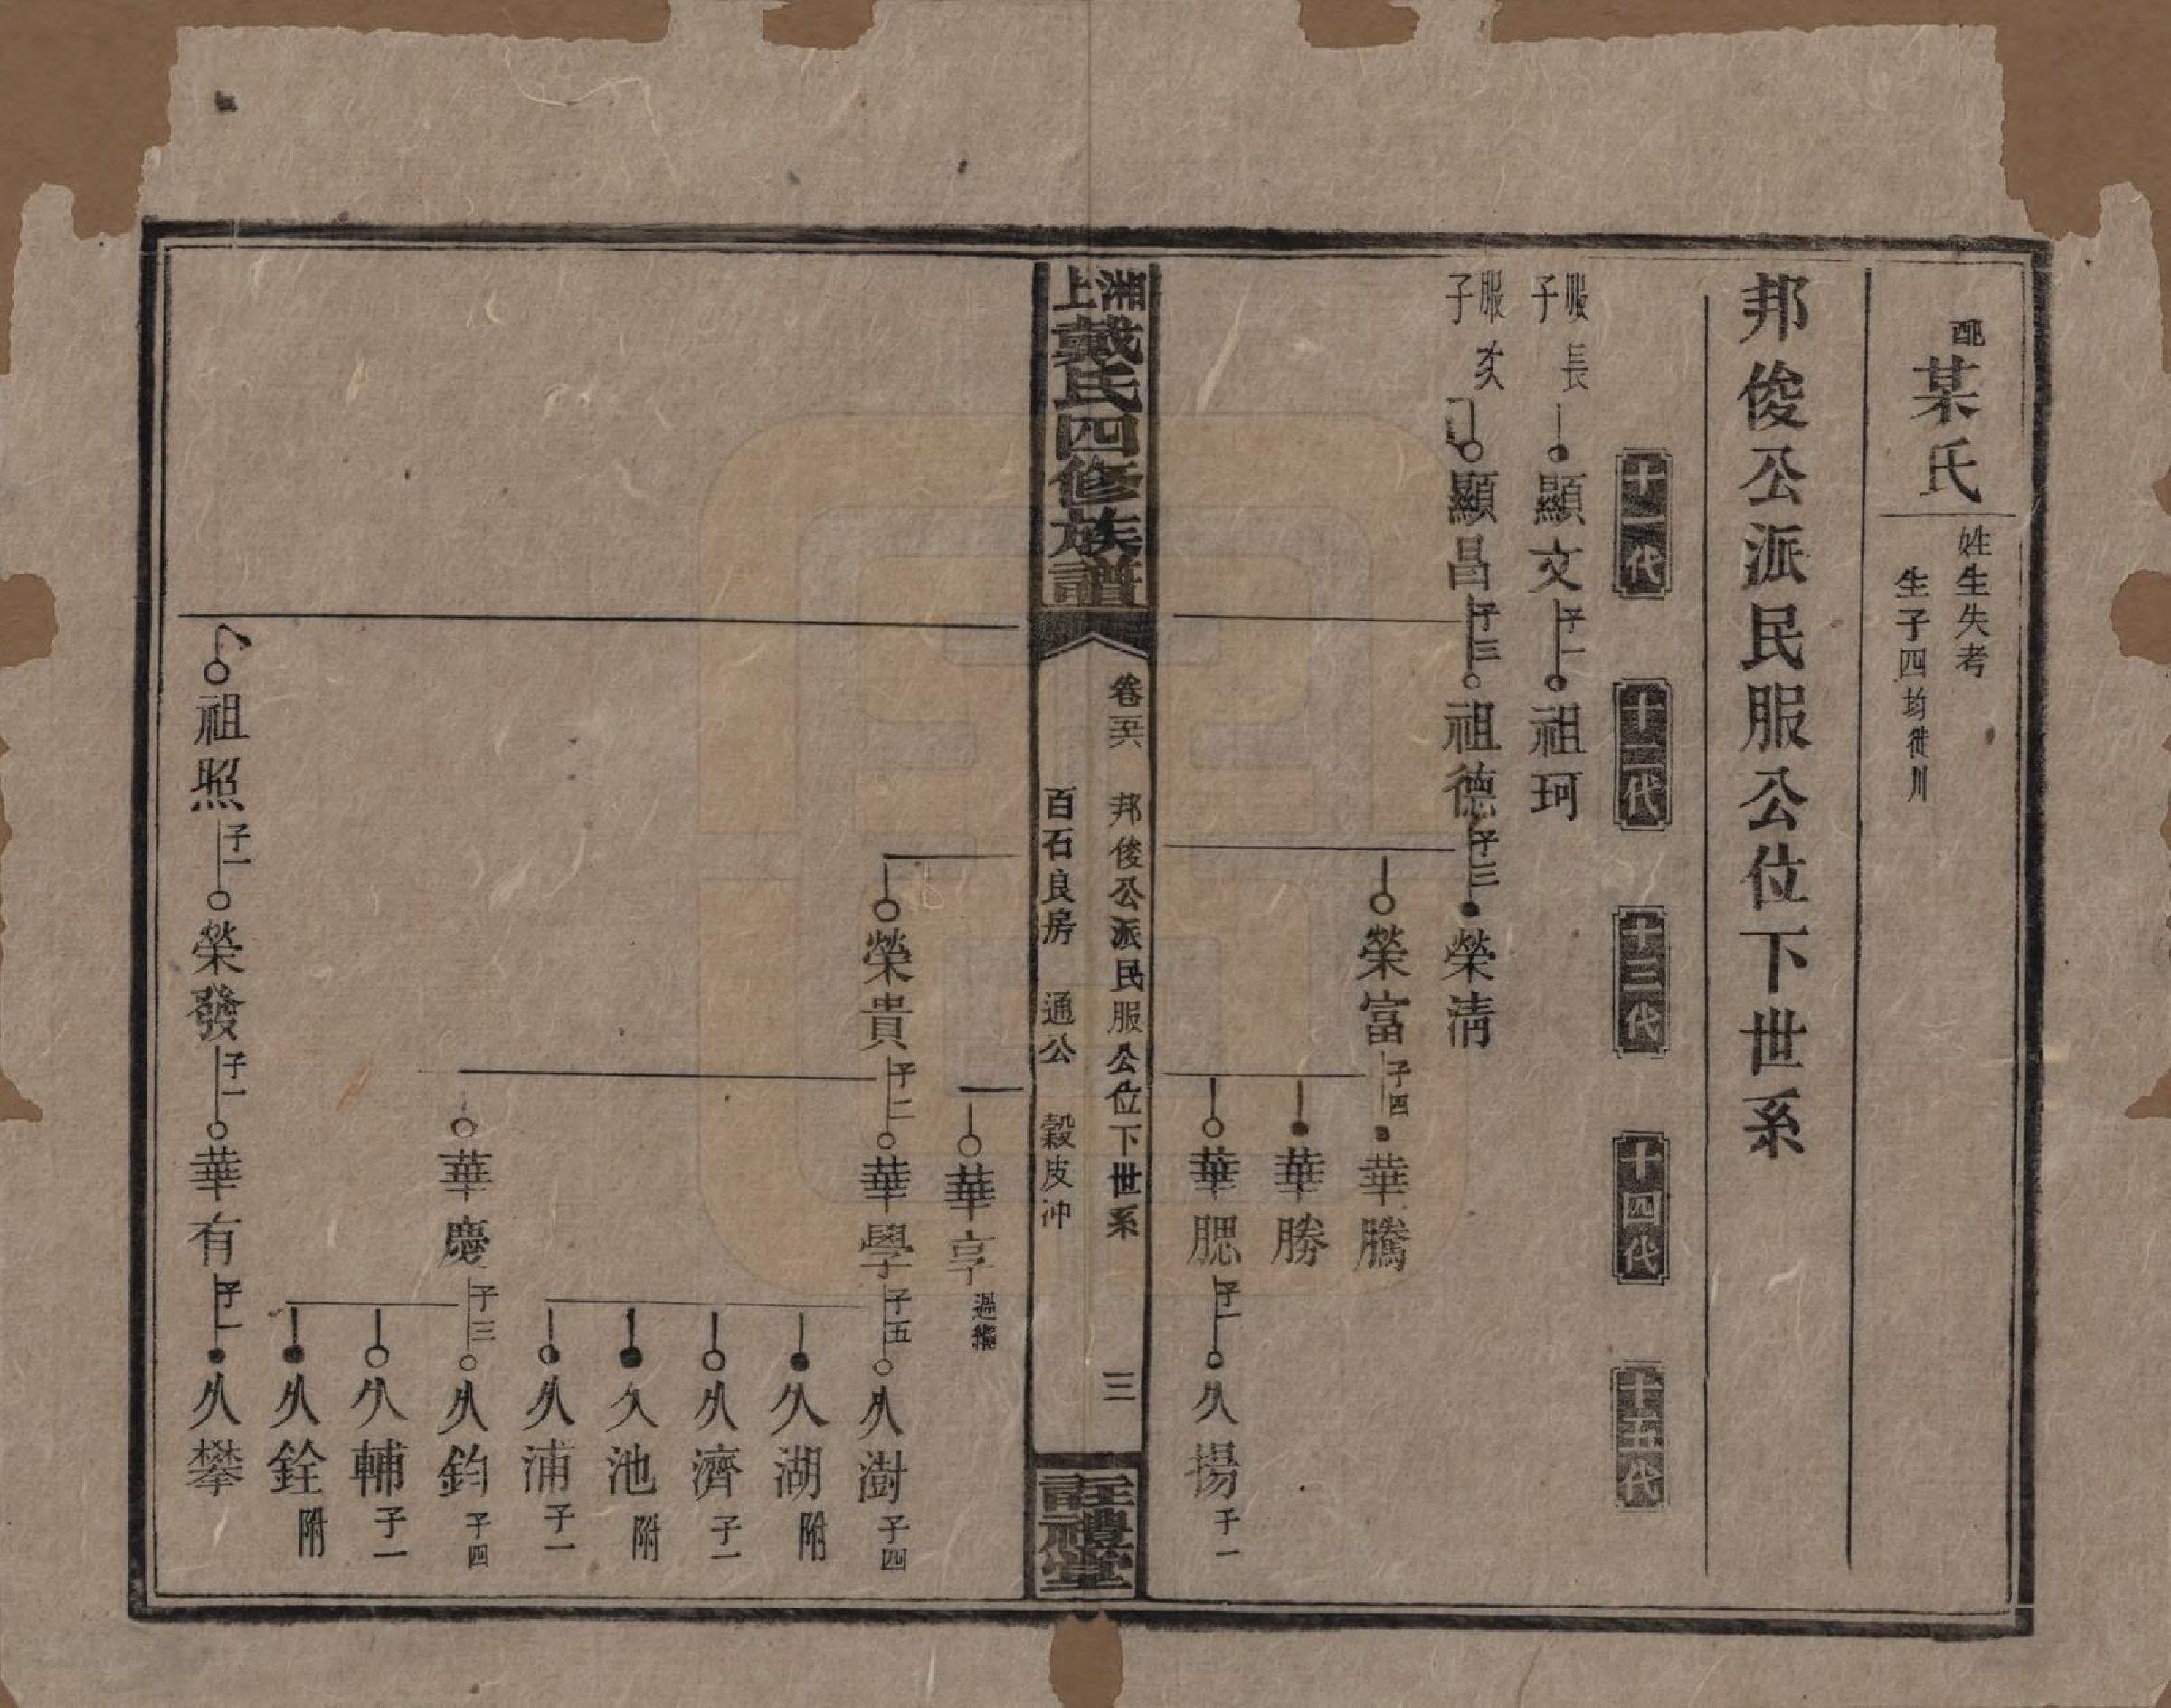 配
某氏
姓生失考
生子四均徙川
邦俊公派民服公位下世系
十一代
十二代
十三代
十四代
十五代
服長子
顯文
子一
祖珂
服次子
顯昌
子三
祖德
子三
榮清
榮富
子四
華騰
華勝
華腮
子一
久揚
子一
湘上戴氏四修族譜
卷
邦俊公派民服公位下世系
三
百石良房 通公 穀皮冲
註禮堂
華亨
過繼
榮貴
子二
華學
子五
久澍
子四
久湖
附
久濟
子一
久池
附
久浦
子一
華慶
子三
久鈞
子四
久輔
子一
久銓
附
祖照
子一
榮發
子一
華有
子一
久攀